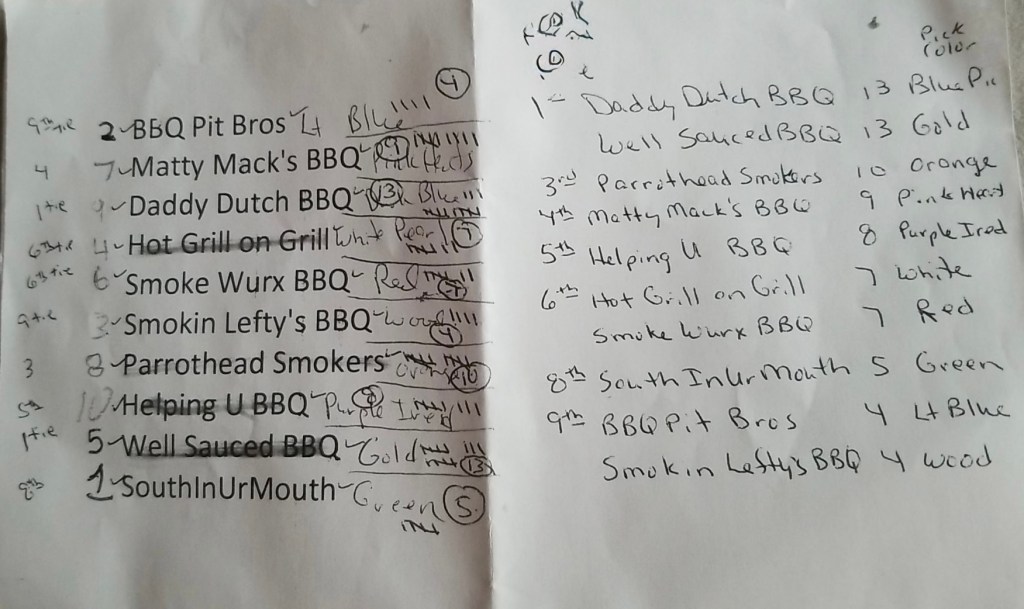 4
9th tie 2 BBQ Pit Bros Lt Blue
4 7 Matty Mack's BBQ 9 Pink Hearts
1 tie 9 Daddy Dutch BBQ 13 Blue
6th tie 4 Hot Grill on Grill White Pearl 7
6th tie 6 Smoke Wurx BBQ Red 7
9 tie 3 Smokin Lefty's BBQ Wood 4
3 8 Parrothead Smokers 10
5th 10 Helping U BBQ Purple Ired 8
1 tie 5 Well Sauced BBQ Gold 13
8th 1 SouthInUrMouth Green 5
Pick Color
1st Daddy Dutch BBQ 13 Blue Pic
Well Sauced BBQ 13 Gold
3rd Parrothead Smokers 10 Orange
4th Matty Mack's BBQ 9 Pink Heart
5th Helping U BBQ 8 Purple Ired
6th Hot Grill on Grill 7 White
Smoke Wurx BBQ 7 Red
8th SouthInUrMouth 5 Green
9th BBQ Pit Bros 4 Lt Blue
Smokin Lefty's BBQ 4 Wood